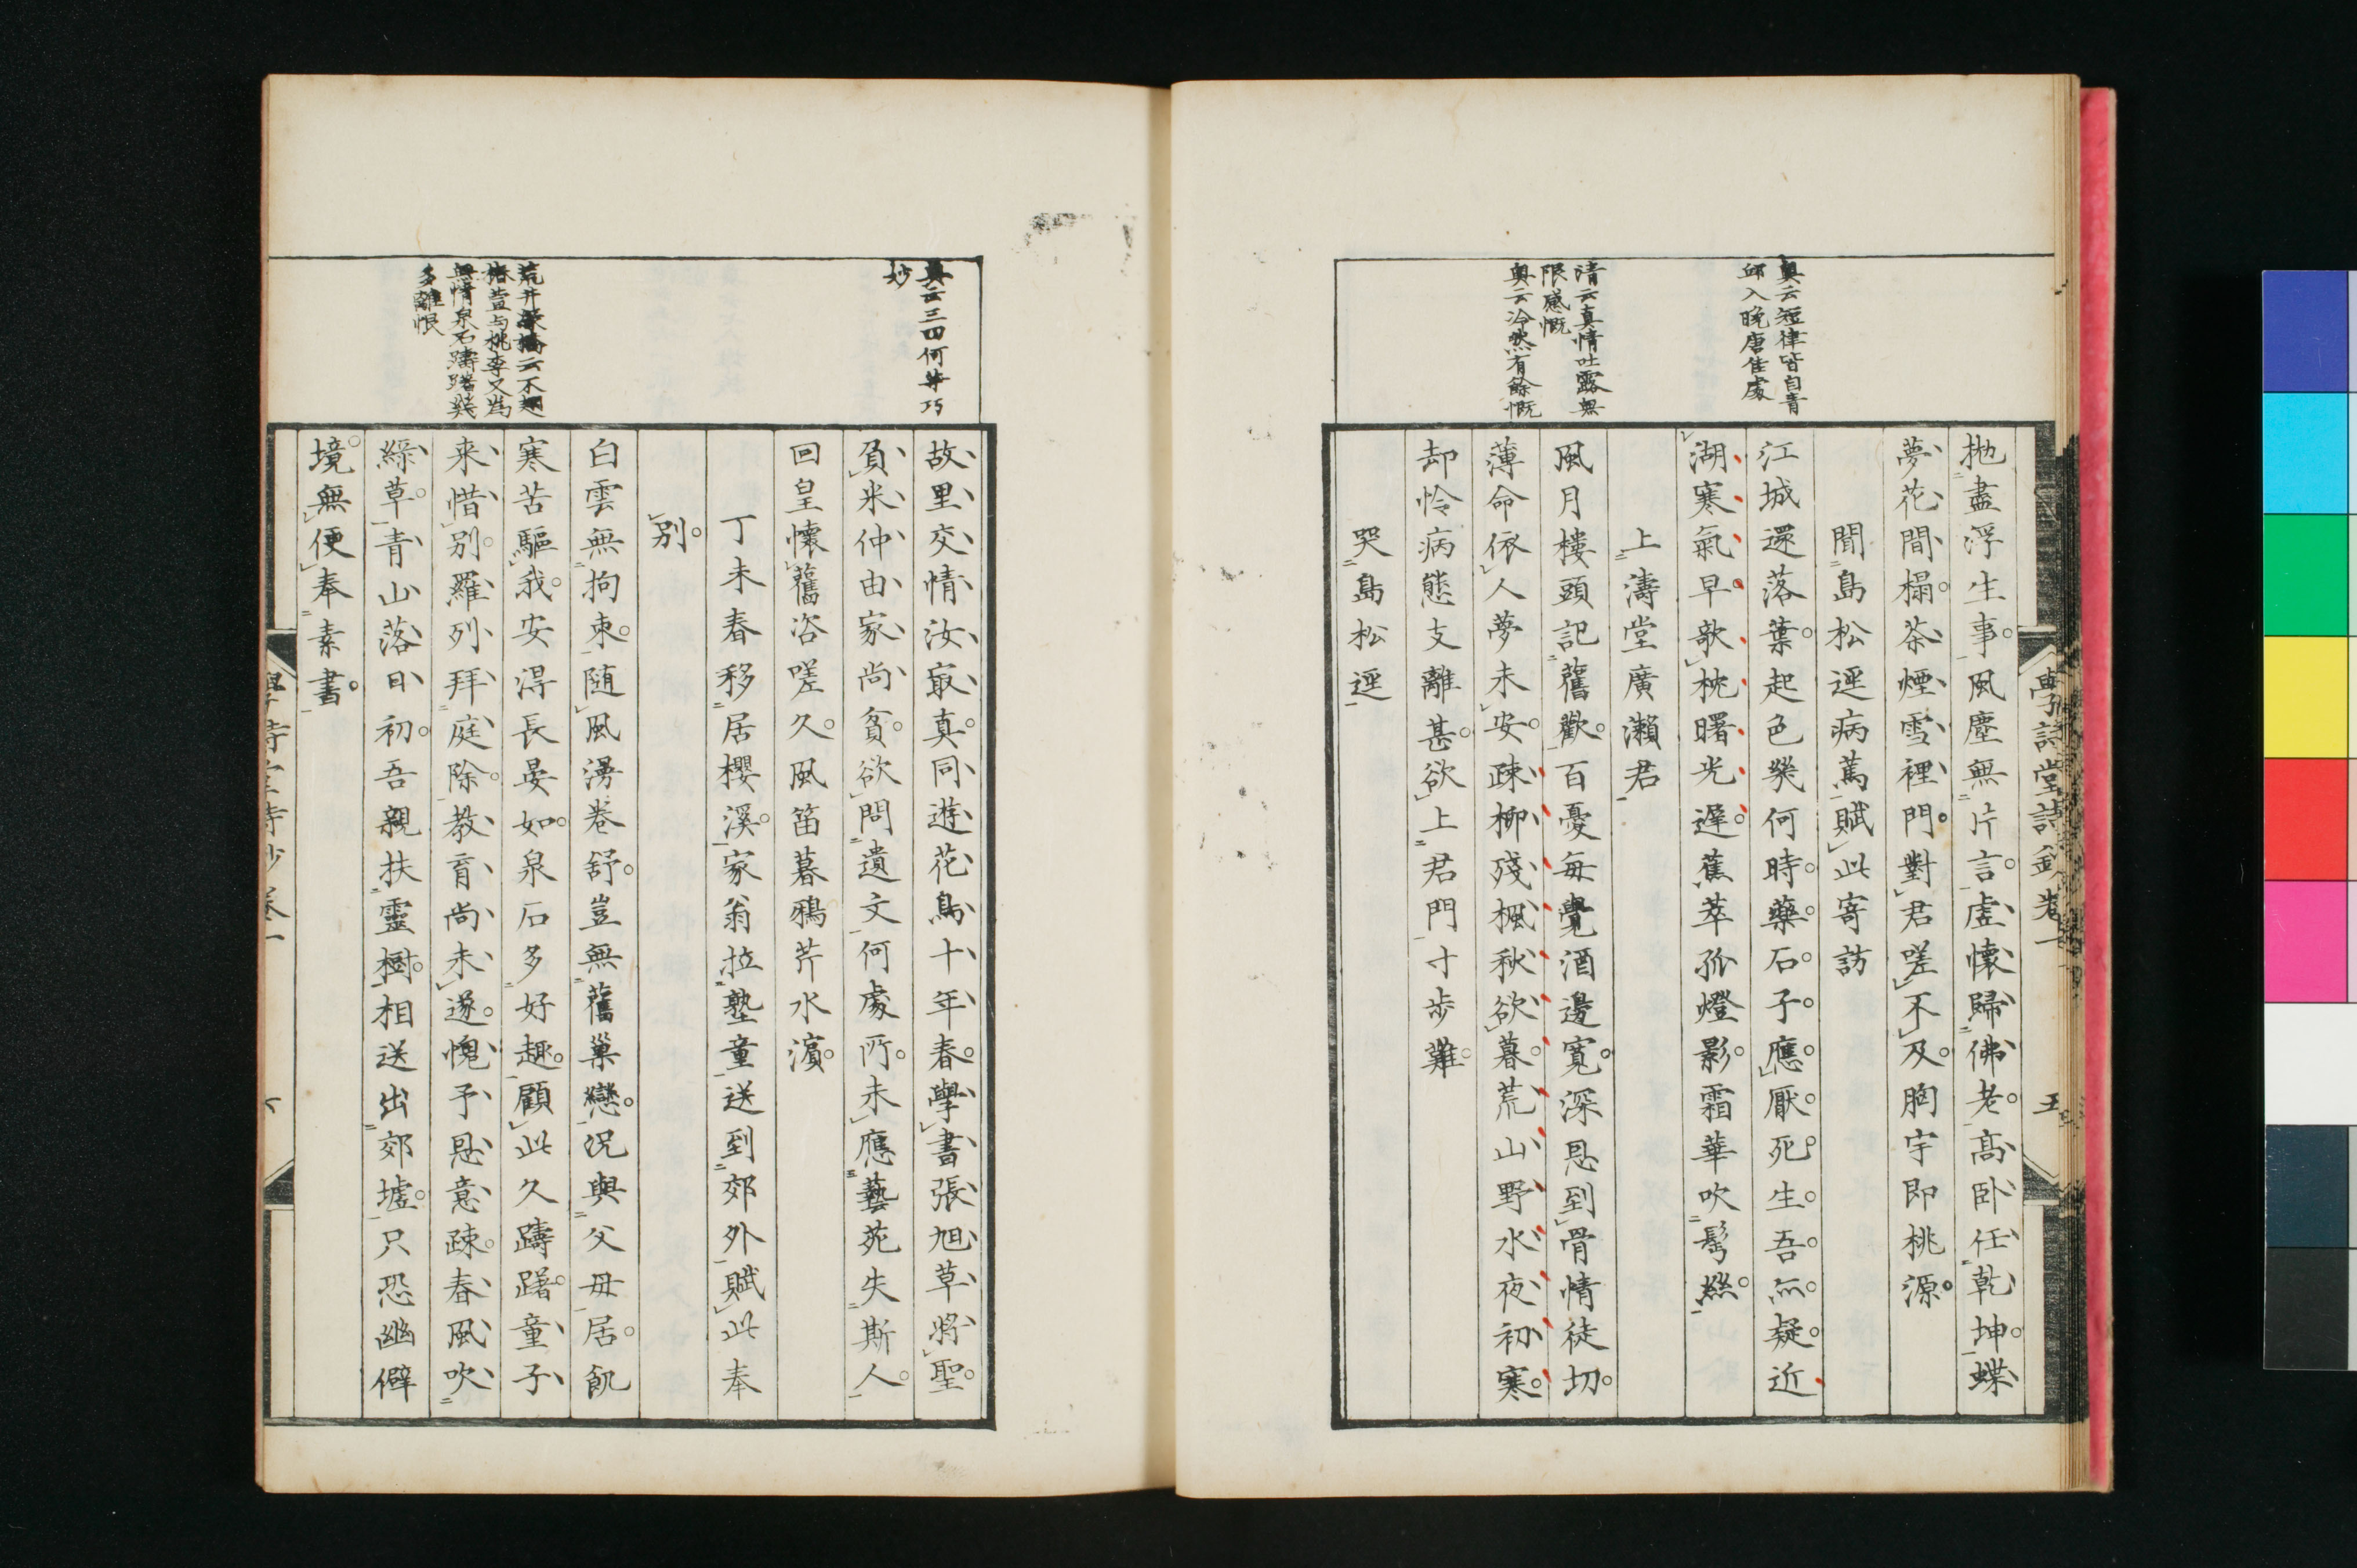 奥云短律皆自青
邱入晩唐隹處
清云真情吐露無
限感慨
奥云冷然有餘慨
學詩堂詩鈔卷一
五
拋盡浮生事風塵無片言虚懷歸佛老高卧任乾坤蝶
夢花間榻茶煙雪裡門對君嗟不及胸宇即桃源
聞島松逕病篤賦此寄訪
江城還落葉起色癸何時藥石子應厭死生吾㸃疑近
湖寒氣早欹枕曙光遲蕉萃孤燈影霜華吹髩絲
上濤堂廣瀬君
風月樓頭記舊歡百憂每覺酒邊寛深恩到骨情徒切
薄命依人夢未安疎柳殘楓秋欲暮荒山野水夜初寒
却怜病態支離甚欲上君門寸步難
哭島松逕
奥云三四何等巧
妙
荒井云不翅
椿萱与桃李又為
無情泉石躊躇裝
多離恨
故里交情汝最真同遊花鳥十年春學書張旭草將聖
負米仲由家尚貧欲問遺文何處所未應藝苑失斯人
回皇懷舊咨嗟久風笛暮鴉芹水濵
丁未春移居櫻溪家翁拉塾童送到郊外賦此奉
別
白雲無拘束随風湧卷舒豈無舊巢戀况與父母居飢
寒苦驅我安得長晏如泉石多好趣顧此久躊躇童子
来惜別羅列拜庭除教育尚未遂愧予恩意疎春風吹
緑草青山落日初吾親扶靈樹相送出郊墟只恐幽僻
境無便奉素書
學詩堂詩鈔卷一
六